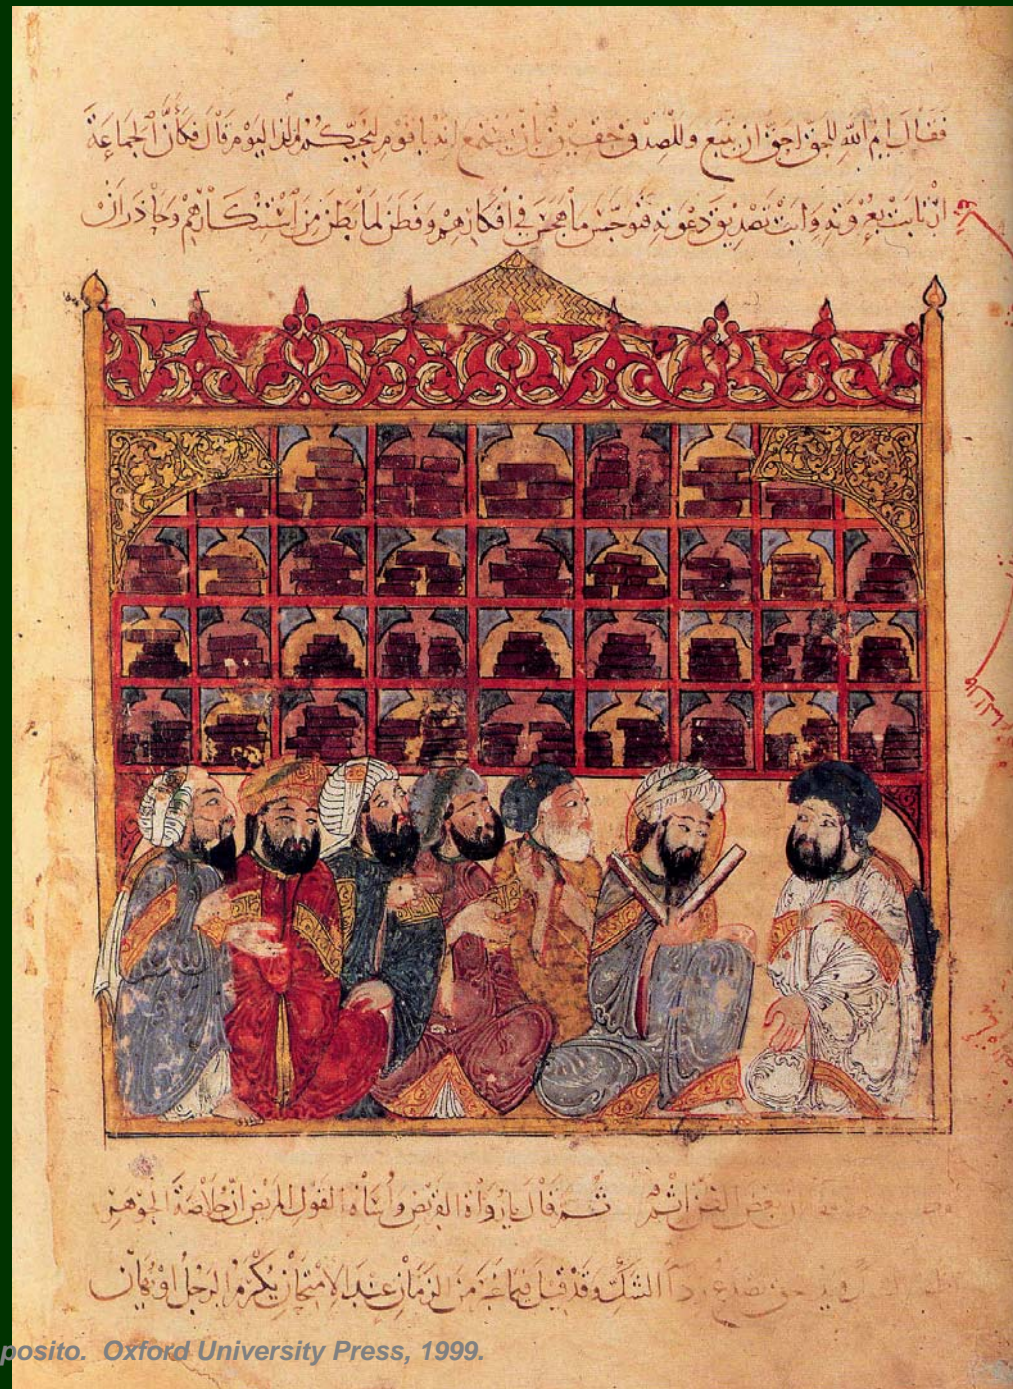 فَقَالَ ايمُ اللهِ للحقُّ احَقُّ ان يُتبعَ وللصِدْقُ حَقيقٌ بان يُستمع انه يا قومِ لنجيّكم مذ اليَوْمِ قَالَ فكأَنَّ الجَمَاعَةَ
ارتابَتْ بعُزوتهِ وابَتْ تصْديقَ دَعْوَتِهِ فتوجّسَ ما هَجَسَ في افكارِهِمْ وَفَطَنَ لما بَطَنَ مِن اسْتِنْكَارِهِمْ وحَاذَرَ انْ
ان بعض الظن اثمٌ ثُمَّ قَالَ يا رُواةَ القَريضِ وَأُسَاةَ القَولِ المريضِ انّ خُلاصَةَ الجَوْهَرِ
الشكِّ وَقَدْ قيلَ فيمَا غَبَرَ مِنَ الزمَانِ عندَ الامْتِحانِ يُكْرَمُ الرَجُلُ اوْ يُهَانُ
posito. Oxford University Press, 1999.